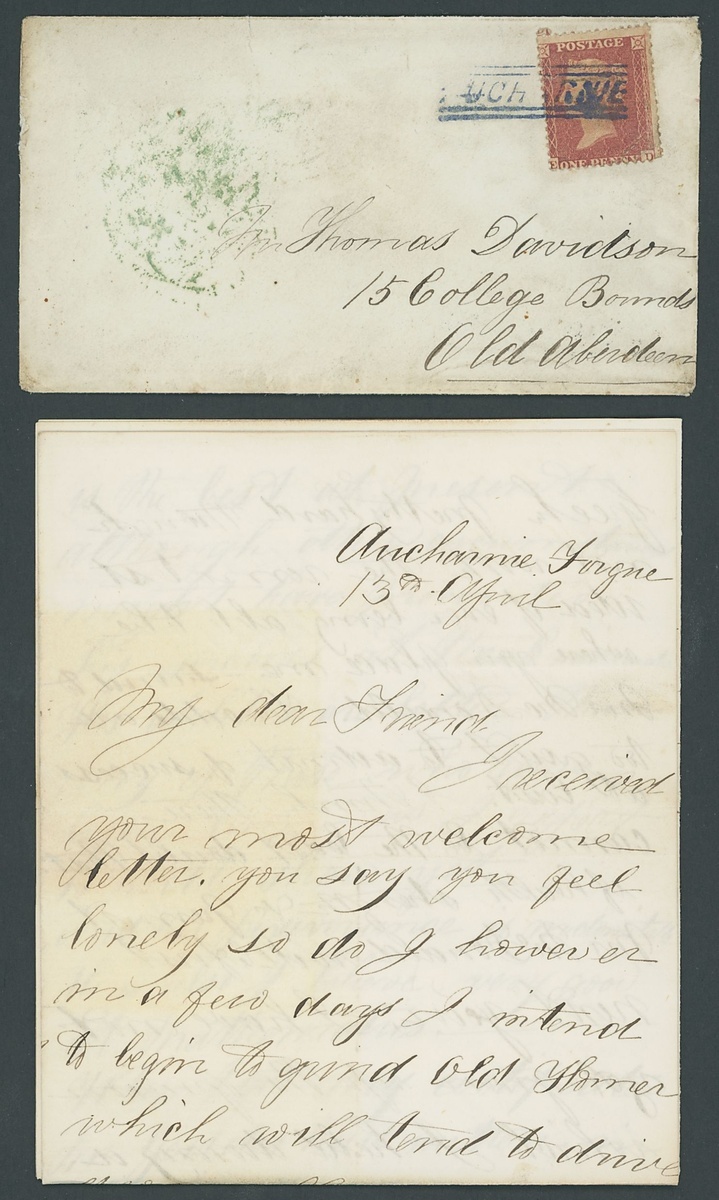 POSTAGE
UCH RNIE
ONE PENNY
E D
Mr Thomas Davidson
15 College Bounds
Old Aberdeen
Aucharnie Forgue
13th April
My dear Friend
I received
your most welcome
letter. you say you feel
lonely so do I however
in a few days I intend
to begin to grind Old Homer
which will tend to drive